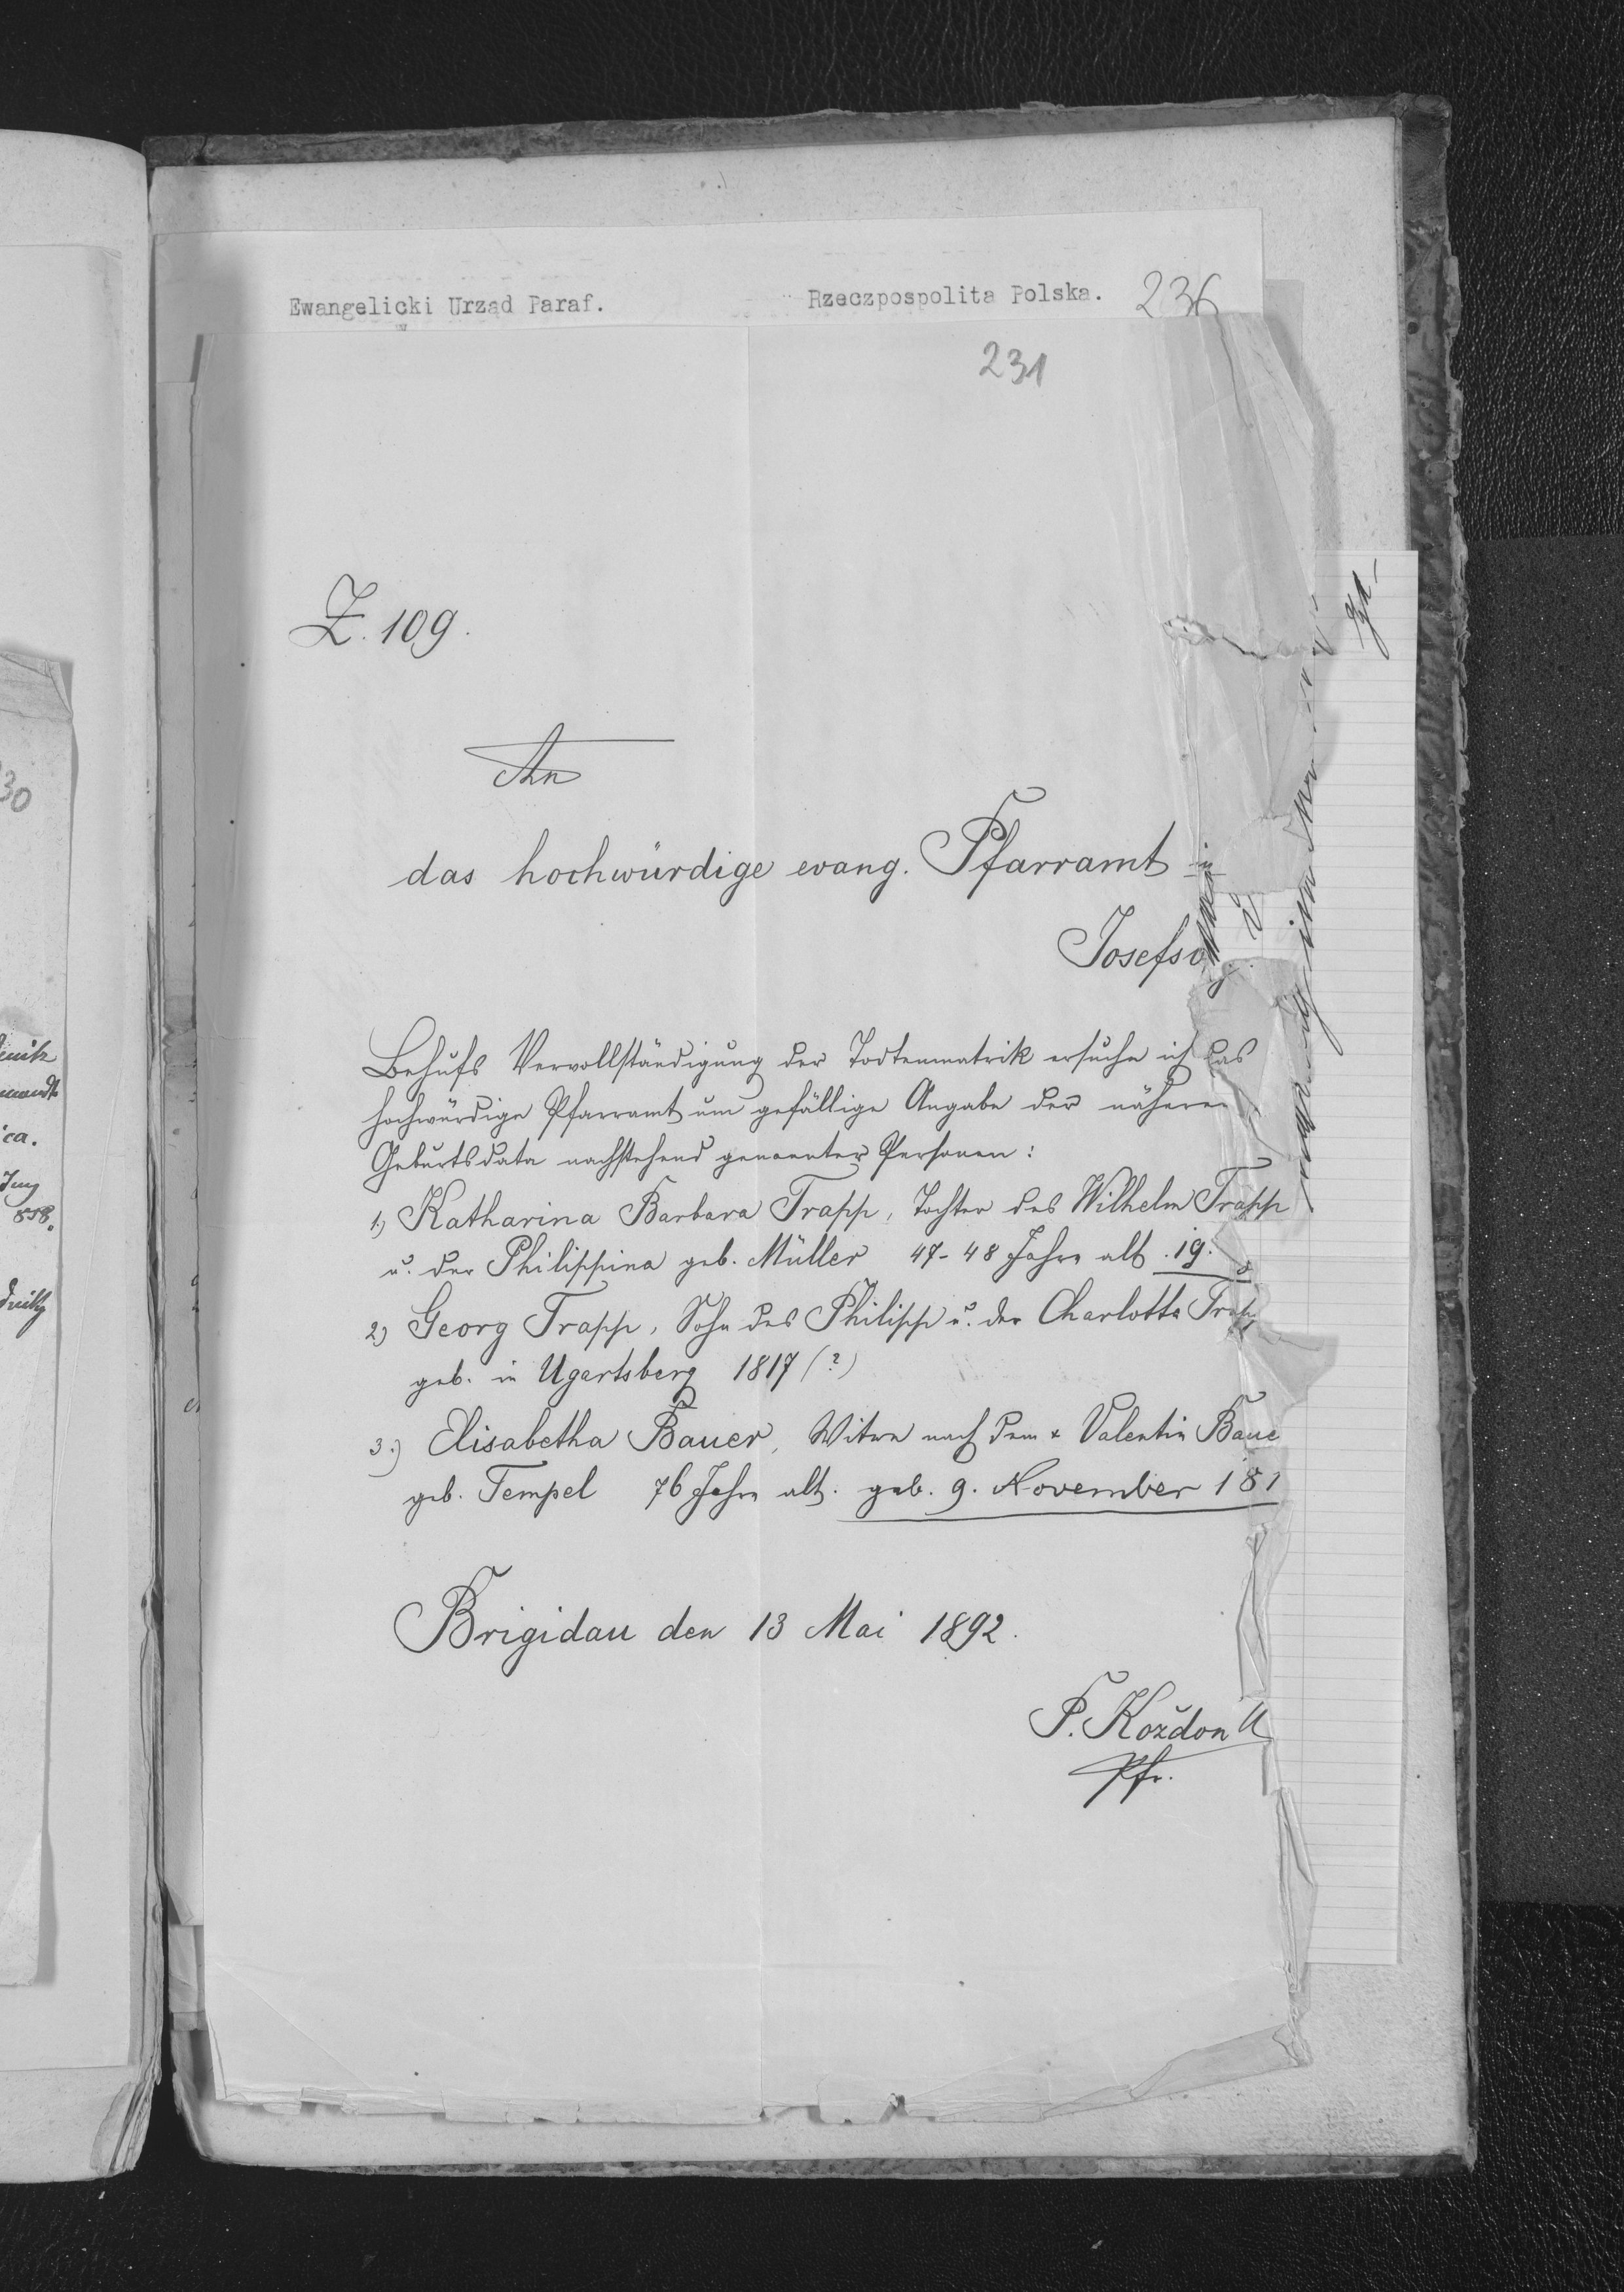 Ewangelicki Urząd Paraf.
Rzeczpospolita Polska. 236
w
231
Z. 109.
An
das hochwürdige evang. Pfarramt in
Josefs
Behufs Vervollständigung der Todtenmatrik ersuche ich das
hochwürdige Pfarramt um gefällige Angabe der näheren
Geburtsdata nachstehend genannter Personen:
1.) Katharina Barbara Trapp, Tochter des Wilhelm Trapp
u. der Philippina geb. Müller 47-48 Jahre alt. 19.
2) Georg Trapp, Sohn des Philipp u. der Charlotte Trapp
geb. in Ugartsberg 1817 (?)
3.) Elisabetha Bauer, Witwe nach dem + Valentin Baue
geb. Tempel 76 Jahre alt. geb. 9. November 181
Brigidau den 13 Mai 1892.
P. Koždon
Pfr.
30
ca.
858.